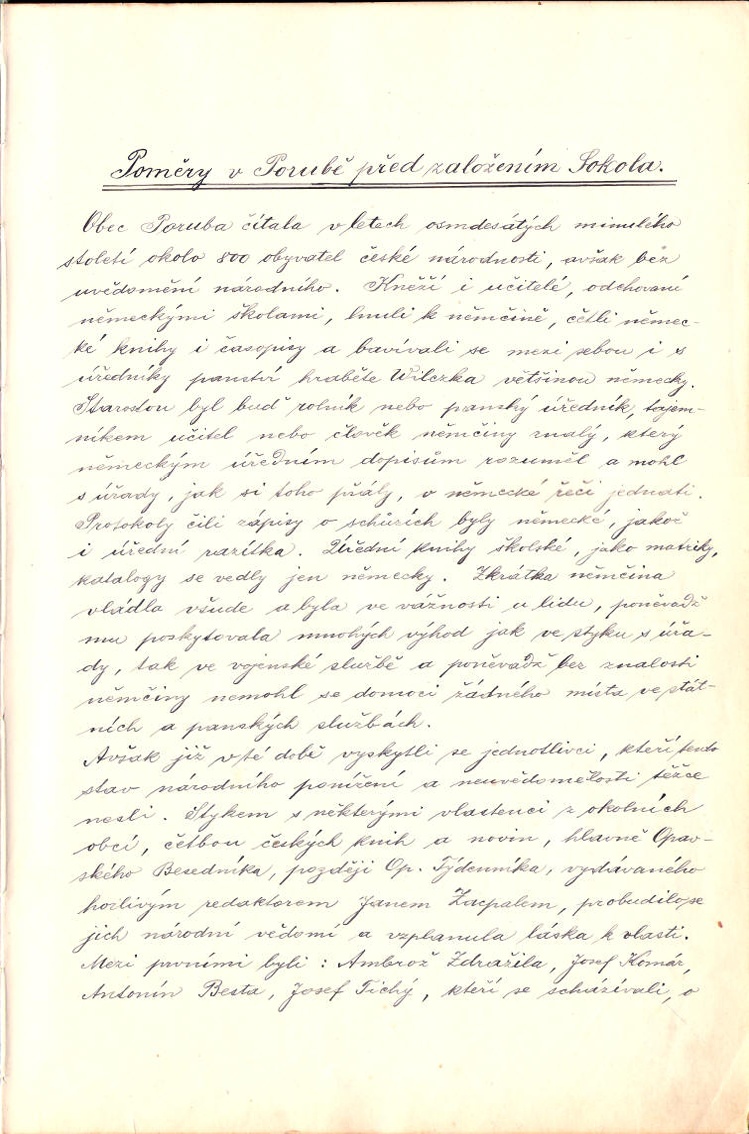 Poměry v Porubě před založením Sokola.
Obec Poruba čítala v letech osmdesátých minulého
století okolo 800 obyvatel české národnosti, avšak bez
uvědomění národního. Kněží i učitelé, odchovaní
německými školami, lnuli k němčině, četli němec-
ké knihy i časopisy a bavívali se mezi sebou i s
úředníky panství hraběte Wilczka většinou německy.
Starostou byl buď rolník nebo panský úředník, tajem-
níkem učitel nebo člověk němčiny znalý, který
německým úředním dopisům rozuměl a mohl
s úřady, jak si toho přály, v německé řeči jednati.
Protokoly čili zápisy o schůzích byly německé, jakož
i úřední razítka. Úřední knihy školské, jako matriky,
katalogy se vedly jen německy. Zkrátka němčina
vládla všude a byla ve vážnosti u lidu, poněvadž
mu poskytovala mnohých výhod jak ve styku s úřa-
dy, tak ve vojenské službě a poněvadž bez znalosti
němčiny nemohl se domoci žádného místa ve stát-
ních a panských službách.
Avšak již v té době vyskytli se jednotlivci, kteří tento
stav národního ponížení a neuvědomělosti těžce
nesli. Stykem s některými vlastenci z okolních
obcí, četbou českých knih a novin, hlavně Opav-
ského Besedníka, později Op. Týdenníka, vydávaného
horlivým redaktorem Janem Zacpalem, probudilo se
jich národní vědomí a vzplanula láska k vlasti.
Mezi prvními byli: Ambrož Zdražila, Josef Komár,
Antonín Besta, Josef Tichý, kteří se scházívali, o